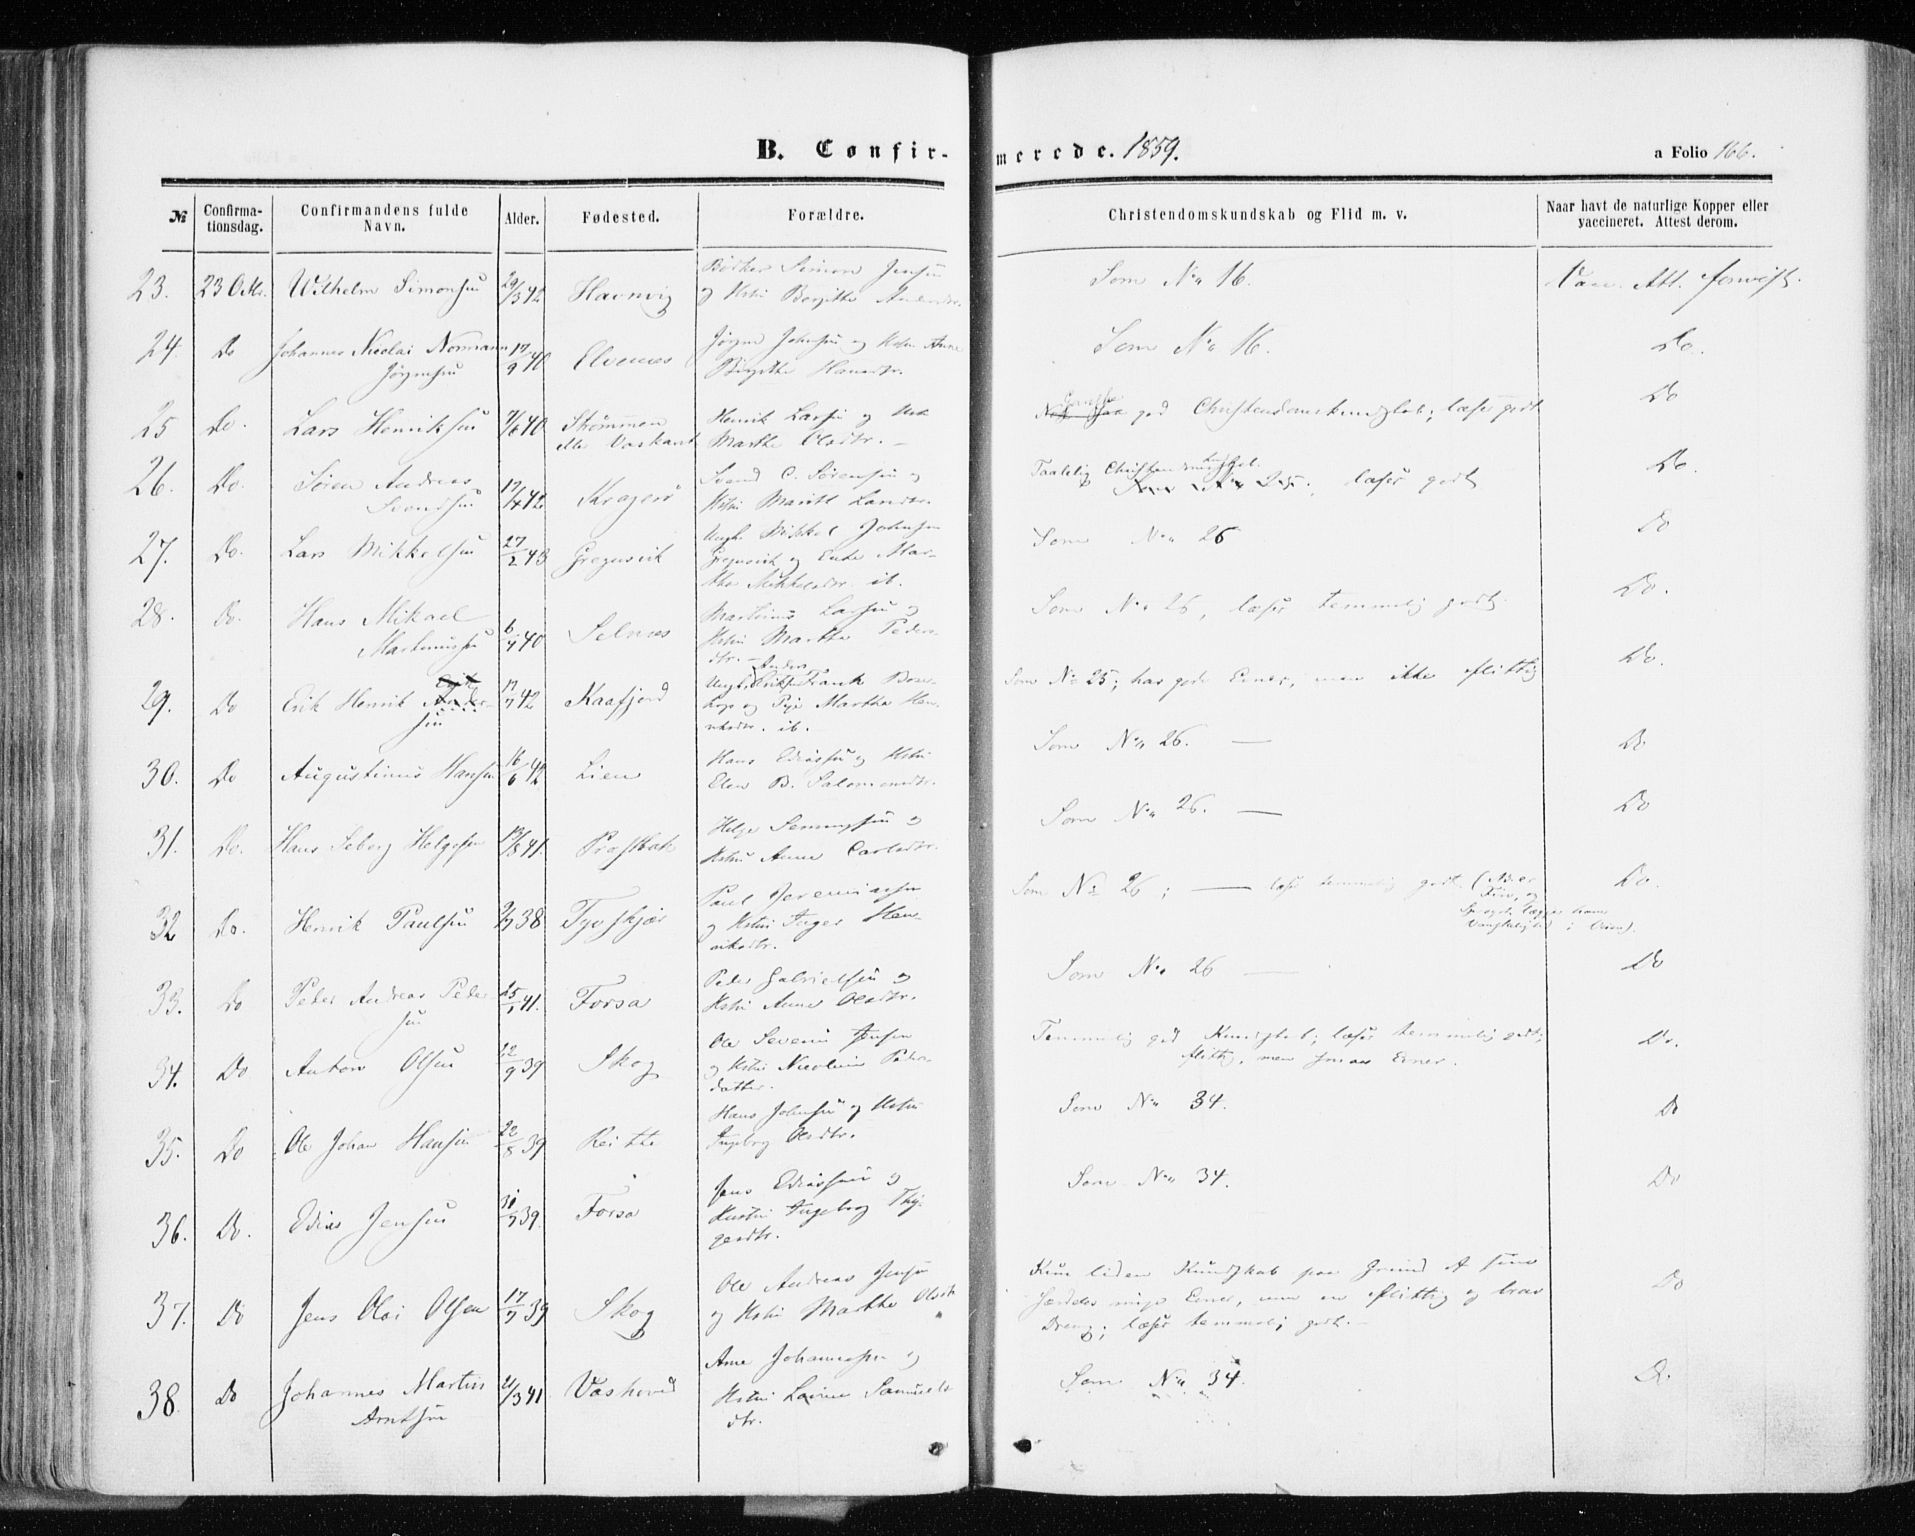 B. Confirmerede. 1859.
a Folio 166.
№ Confirma-tionsdag. Confirmandens fulde Navn. Alder. Fødested. Forældre. Christendomskundskab og Flid m. v. Naar havt de naturlige Kopper eller vaccineret. Attest derom.
23. 23 Octbr. Wilhelm Simonsen 29/3 42 Havnvig Bødker Simon Jensen
og Hstru Birgitte Andersdtr. Som No 16. Vacc. Att. forevist.
24. Do Johannes Nicolai Normann
Jørgensen 17/9 40 Elvenes Jørgen Johnsen og Hstru Anne
Birgitte Hansdtr. Som No 16. Do.
25 Do. Lars Henriksen 7/6 40 Strømmen
eller Vaskant Henrik Larsen og Hst
Marthe Olsdtr. Ganske god Christendomskundskab; læser godt Do
26. Do. Søren Andreas
Svendsen 17/4 42 Kragerø Svend C. Sørensen og
Hstru Marith Larsdtr. Taalelig Christendomskundskab.
Som No 25., læser godt Do.
27. Do. Lars Mikkelsen 27/2 43 Gregusvik Ungk. Mikkel Johnsen
Gregusvik og Enke Mar-
the Mikkelsdtr. ib. Som No 26 Do
28. Do. Hans Mikael
Martinussen 6/7 40 Selnes Martinus Larsen og
Hstru Marthe Peders-
dtr. Som No 26, læser temmelig godt. Do.
29. Do Erik Henrik Anders-
sen 17/7 42 Kaafjord Anders
Bose-
kop og Pige Marthe Hen-
riksdtr. ib. Som No 25; har gode Evner, men ikke flittig Do.
30. Do Augustinus Hansen 16/6 42 Lien Hans Ediassen og Hstru
Elen B. Salomonsdtr. Som No 26. — Do
31. Do. Hans Seberg Helgesen 13/8 41. Præstbak Helge Hemmingsen og
Hstru Anne Carlsdtr. Som No 26. — Do
32 Do. Henrik Paulsen 9/7 38 Tyvskjær Paul Jeremiassen
og Hstru Inger Hen-
riksdtr. Som No 26; — læser temmelig godt. Do.
33. Do Peder Andreas Peder
sen 25/1 41. Forsa Peder Gabrielsen og
Hstru Anne Olsdtr. Som No 26 — Do
34. Do Anton Olsen 22/9 39 Skog Ole Severin Jensen
og Hstru Nicoline Peders-
datter. Temmelig god Kundskab; læser temmelig godt;
flittig, men smaae Evner. Do.
35. Do Ole Johan Hansen 22/8 39 Reitte Hans Johnsen og Hstru
Ingeborg Olsdtr. Som No 34. Do
36. Do. Edias Jensen 31/7 39. Forsa Jens Ediassen og
Hustru Ingeborg Thø-
gersdtr. Som No 34. Do
37. Do Jens Olai Olsen 17/7 39 Skog Ole Andreas Jensen
og Hstru Marthe Olsdtr Kun liden Kundskab paa Grund af sine
særdeles ringe Evner, men en flittig og brav
Dreng; læser temmelig godt. — Do
38. Do Johannes Martin
Arntsen 21/3 41 Vashoved Arne Johannessen og
Hstru Lovine Samuels
dtr. Som No 34. D.